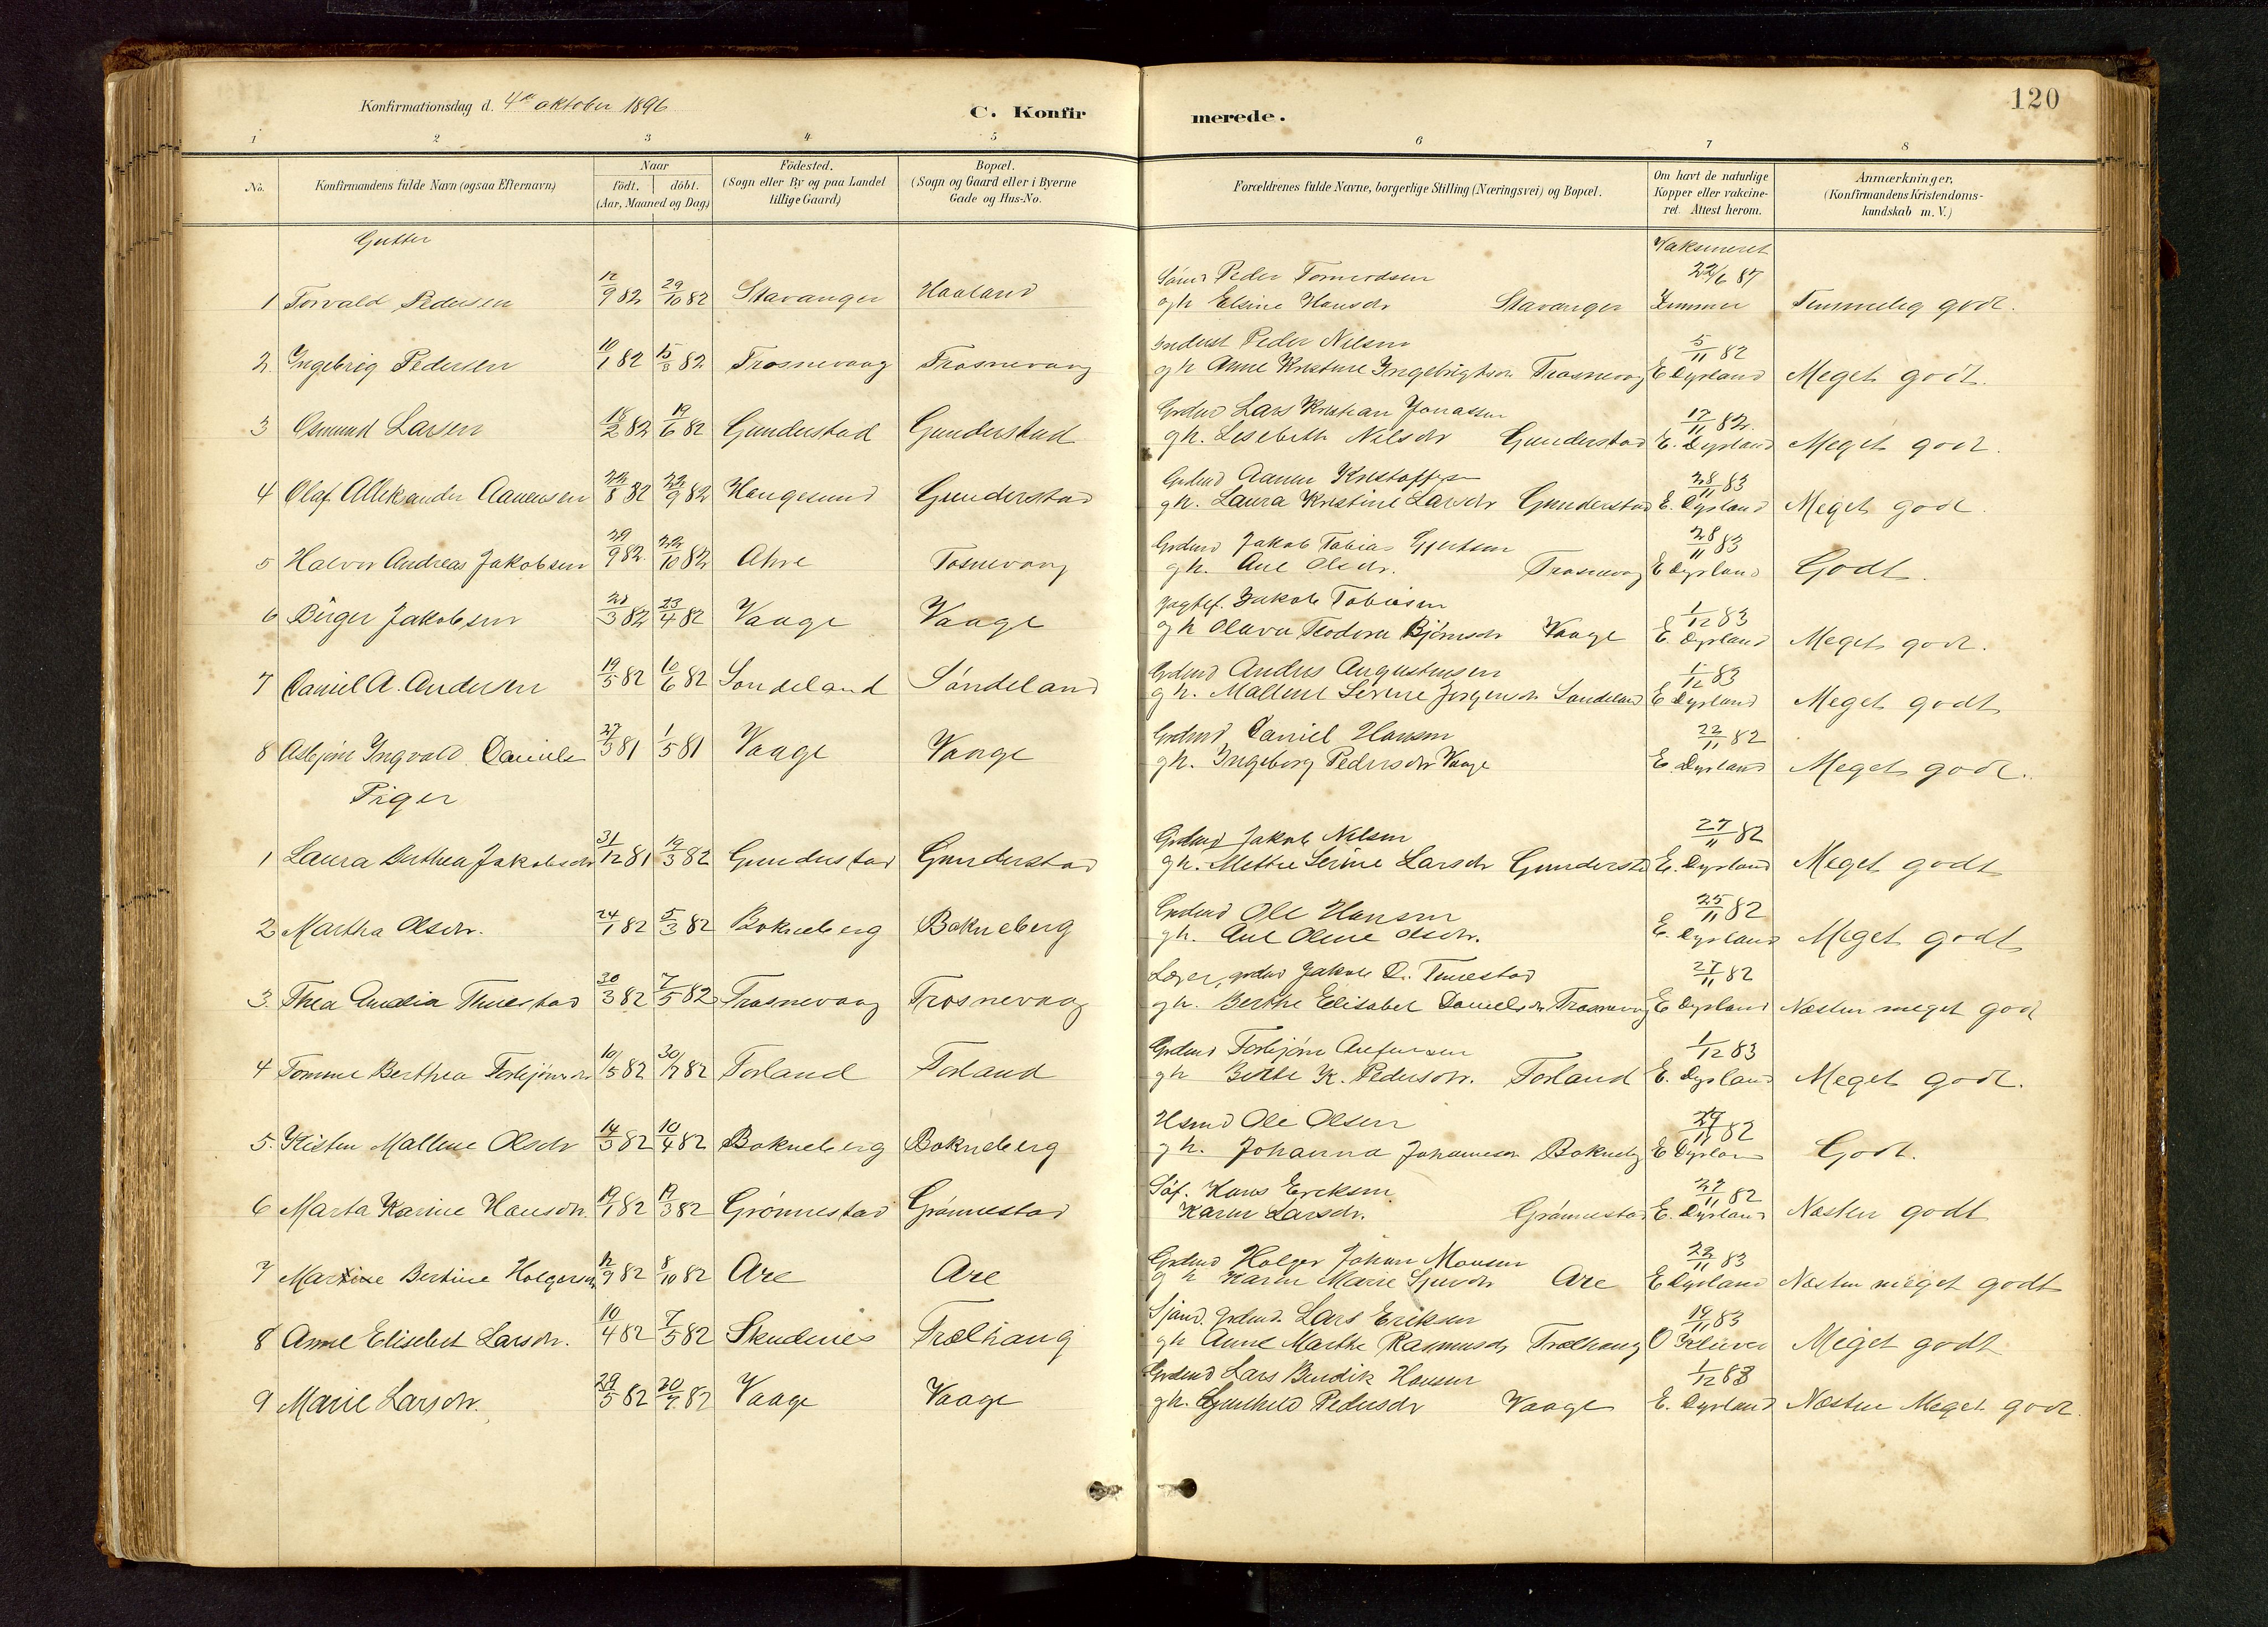 120
Konfirmationsdag d. 4de oktober 1896
C. Konfirmerede.
1 2 3 4 5 6 7 8
No.
Konfirmandens fulde Navn (ogsaa Efternavn)
Naar
födt. döbt.
(Aar, Maaned og Dag)
Födested.
(Sogn eller By og paa Landet
tillige Gaard)
Bopæl.
(Sogn og Gaard eller i Byerne
Gade og Hus-No.
Forældrenes fulde Navne, borgerlige Stilling (Næringsvei) og Bopæl.
Om havt de naturlige
Kopper eller vakcine-
ret. Attest herom.
Anmærkninger,
(Konfirmandens Kristendoms-
kundskab m. V.)
Gutter
Vaksineret
Peder Tormodsen 22/6 87
1 Torvald Pedersen 12/9 82 29/10 82 Stavanger Haaland gh Elsine Hansdr Stavanger Zimmer Temmelig godt.
Inderst Peder Nilsen 5/11 82
2. Ingebrig Pedersen 10/1 82 15/3 82 Trosnevaag Trosnevaag gh Anne Kristine Trosnevag E Dyrland Meget godt.
Grdmd Lars Kristian Jonassen 17/11 82.
3 Osmund Larsen 18/2 82 19/6 82 Gunderstad Gunderstad gh. Lisebeth Nilsdr Gunderstad E. Dyrland Meget godt.
Grdmd Aanen Kristoffersen 28/11 83
4 Olaf Alleksander Aanensen 22/8 82 22/9 82 Haugesund Gunderstad gh. Laura Kristine Larsdr Gunderstad E. Dyrland Meget godt.
Grdmd Jakob Tobias Gjertsen 28/11 83
5 Halvor Andreas Jakobsen 29/9 82 22/10 82 Ahre Tosnevaag gh. Ane Olsdr. Trosnevag E Dyrland Godt.
Jakob Tobiasen 1/12 83
6 Birger Jakobsen 21/3 82 23/4 82 Vaage Vaage gh Olava Teodora Bjørnsdr Vaage E. Dyrland Meget godt.
Grdmd Andres Augustinsen 1/12 83
7 Daniel A. Andersen 19/5 82 10/6 82 Sondeland Søndeland gh. Mallene Serine Jørgensdr Sondeland E Dyrland Meget godt
Grdmd Daniel Hansen 22/11 82
8 Asbjørn Ingvald Daniels 27/3 81 1/5 81 Vaage Vaage gh. Ingeborg Pedersdr Vaage E. Dyrland Meget godt.
Piger
Grdmd Jakob Nilsen 27/11 82
1 Laura Berthea Jakobsdr 31/12 81 19/3 82 Gunderstad Gunderstad gh. Mette Serine Larsdr Gundersta E. Dyrland Meget godt
Grdmd Ole Hansen 25/11 82
2 Martha Olsdr. 24/1 82 5/3 82 Bokneberg Bokneberg gh. Ane Oline Olsdr. E. Dyrland Meget godt
Lærer, grdmd Jakob D. Tuestad 27/11 82
3. Thea Amalia Thuestad 30/3 82 7/5 82 Trosnevaag Trosnevaag gh. Berthe Elisabet Danielsdr Trosnevag E Dyrland Næsten meget god
Grdmd Torbjørn 1/12 83
4 Tomme Berthea Torbjørnsdr 10/5 82 30/7 82 Forland Forland gh Birthe K. Pedersdr. Forland E. Dyrland Meget godt.
Husmd Ole Olsen 29/11 82
5. Kisten Mallene Olsdr 14/3 82 10/4 82 Bokneberg Bokneberg gh. Johanna Johannesdr Boknebg E Dyrland Godt.
Hans Ericksen 27/11 82
6 Marta Karine Hansdr. 19/1 82 19/3 82 Grønnestad Grønnestad Karen Larsdr. Grønnestad E. Dyrland Næsten godt
Grdmd Holger Johan Monsen 22/11 83
7 Martine Bertine Holgersdr 12/9 82 8/10 82 Are Are gh Karen Marie Are E Dyrland Næsten meget godt
Grdmd. Lars Ericksen 19/11 83
8 Anne Elisebet Larsdr. 10/4 82 7/5 82 Skudenes Trælhaug gh Anne Marthe Rasmusdr Trælhaug O Klüver Meget godt
Grdmd Lars Bendik Hansen 1/12 83
9 Marie Larsdr. 29/5 82 20/7 82 Vaage Vaage gh. Gunhild Pedersdr Vaage E. Dyrland Næsten Meget godt.